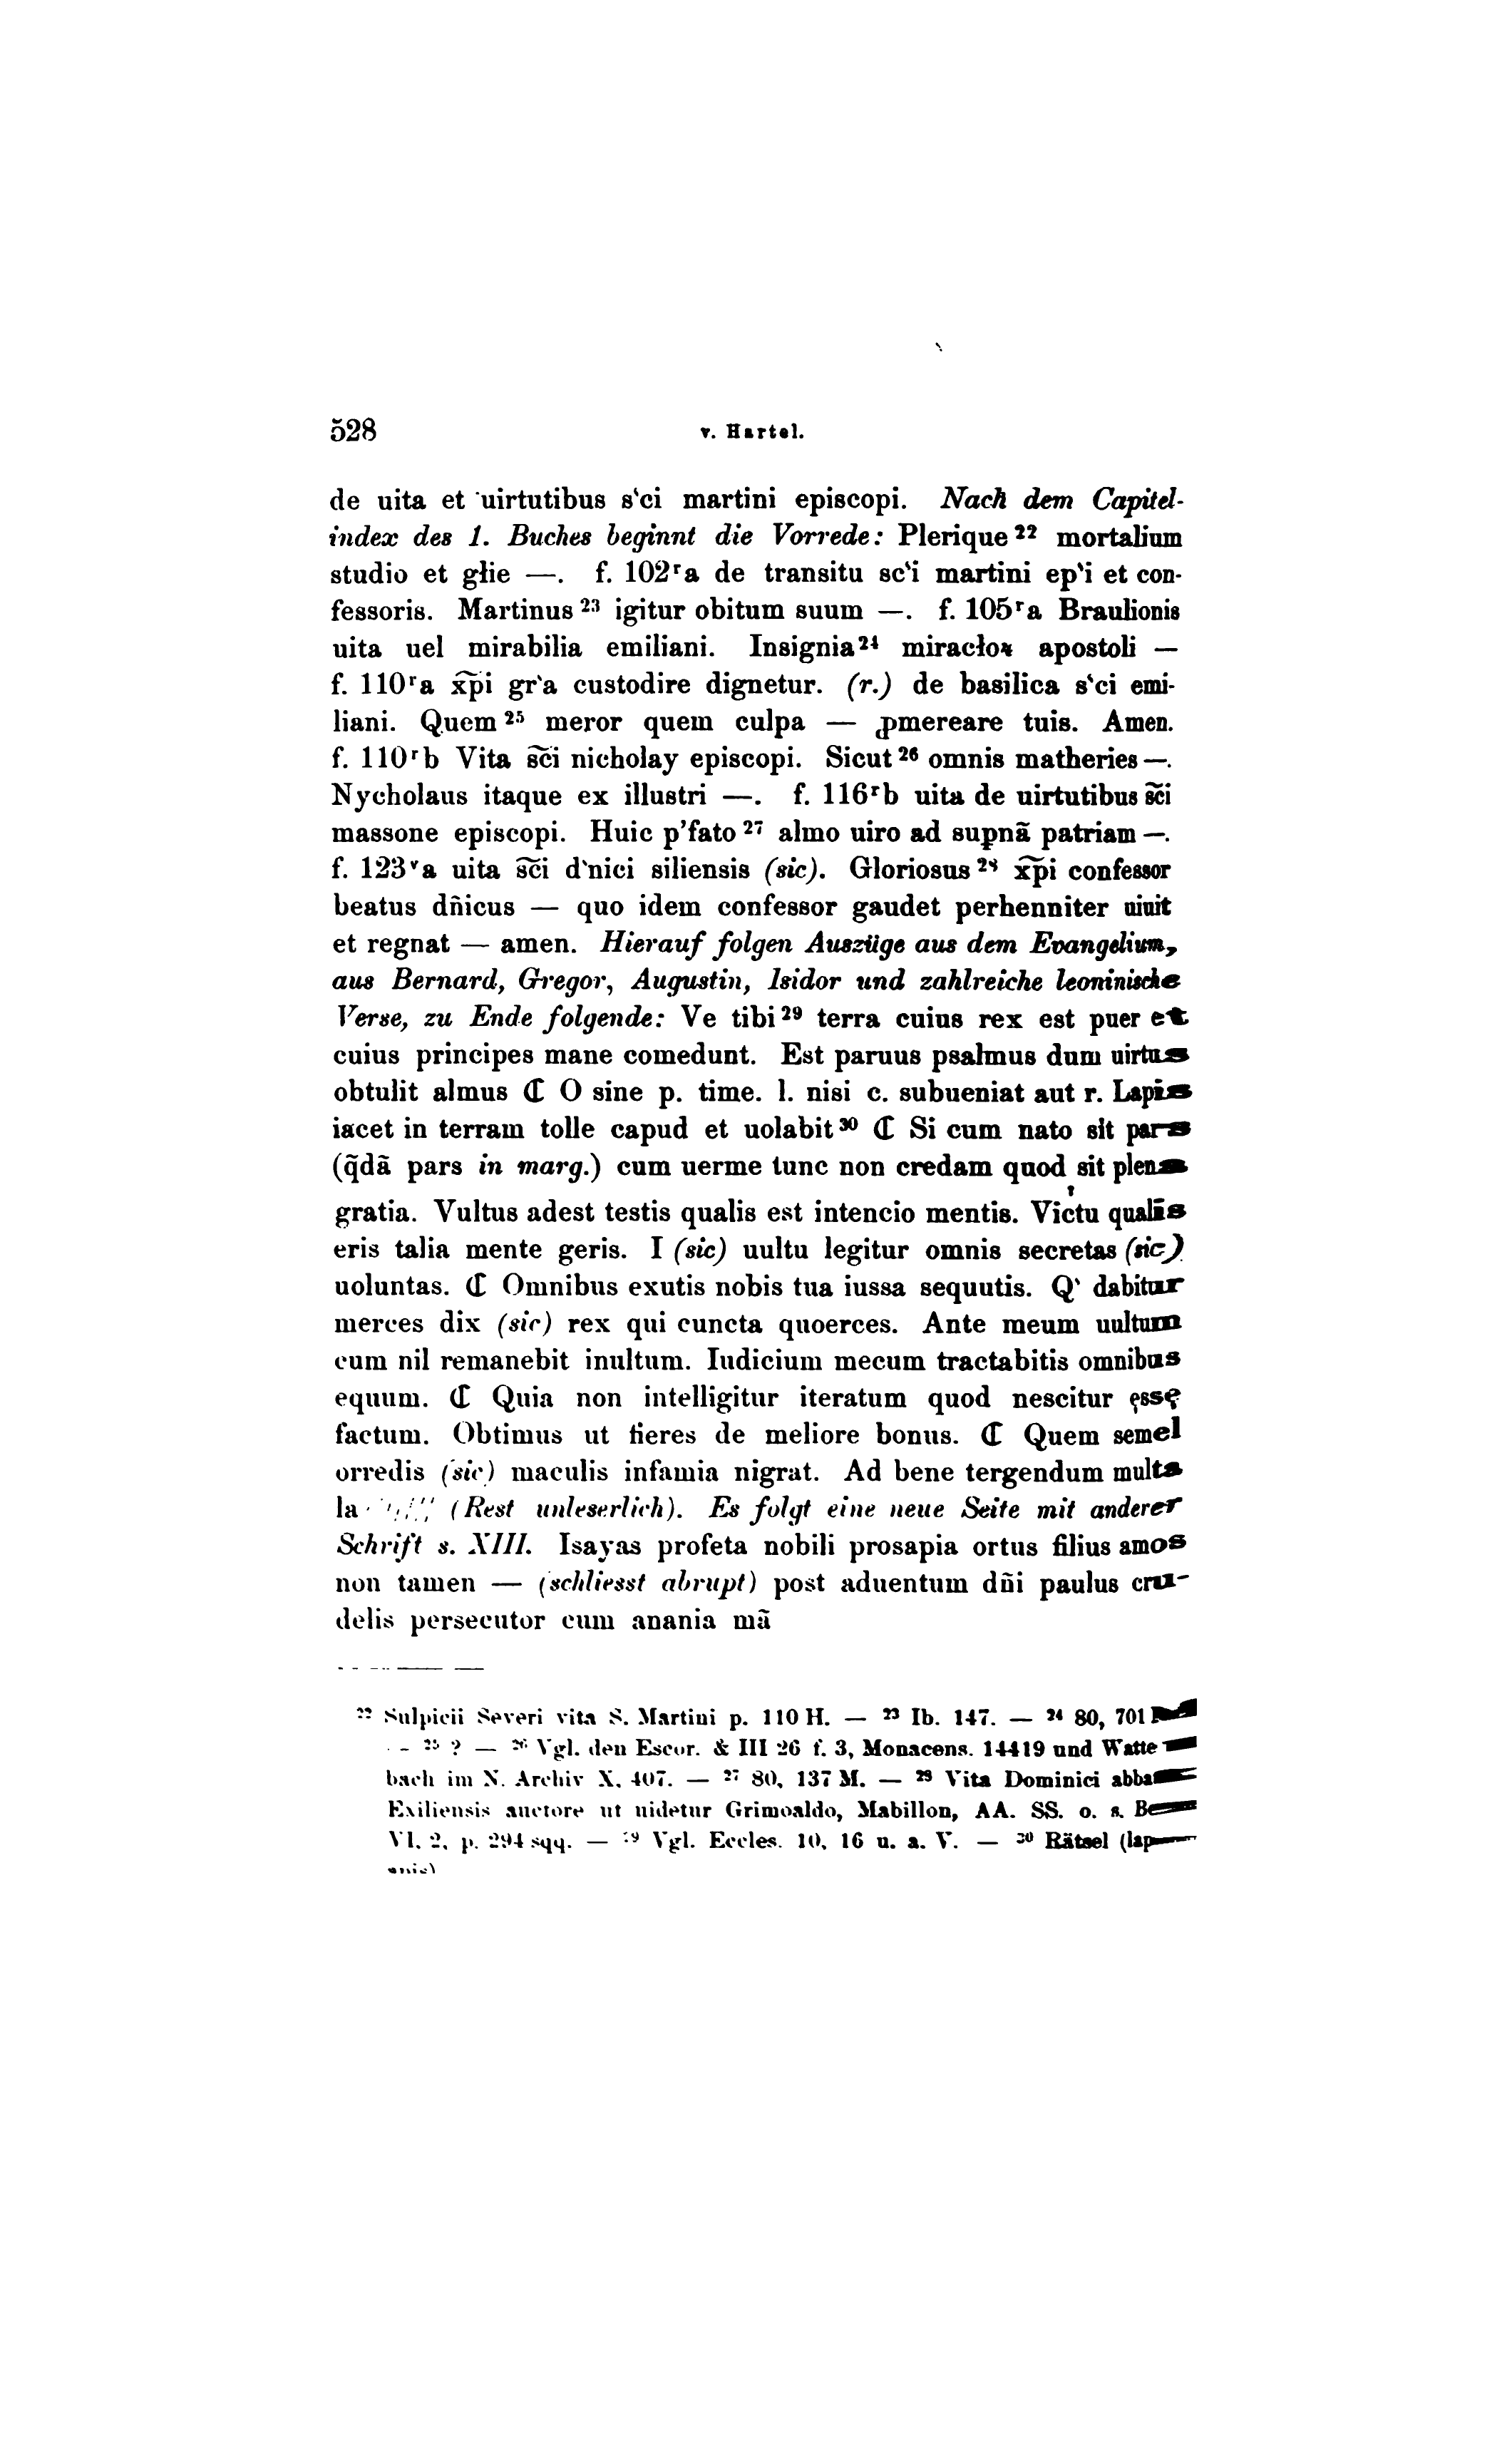 528 v. Hartel.
de uita et uirtutibus s‘ci martini episcopi. Nach dem Capitel-
index des 1. Buches beginnt die Vorrede: Plerique ²² mortalium
studio et głie —. f. 102ʳa de transitu sc‘i martini ep‘i et con-
fessoris. Martinus ²³ igitur obitum suum —. f. 105ʳa Braulionis
uita uel mirabilia emiliani. Insignia ²⁴ miracłoꝝ apostoli —
f. 110ʳa x͠pi gr‘a custodire dignetur. (r.) de basilica s‘ci emi-
liani. Quem ²⁵ meror quem culpa — ꝓmereare tuis. Amen.
f. 110ʳb Vita s͠ci nicholay episcopi. Sicut ²⁶ omnis matheries —.
Nycholaus itaque ex illustri —. f. 116ʳb uita de uirtutibus s͠ci
massone episcopi. Huic p’fato ²⁷ almo uiro ad suꝑnã patriam —.
f. 123ᵛa uita s͠ci d‘nici siliensis (sic). Gloriosus ²⁸ x͠pi confessor
beatus dñicus — quo idem confessor gaudet perhenniter uiuit
et regnat — amen. Hierauf folgen Auszüge aus dem Evangelium,
aus Bernard, Gregor, Augustin, Isidor und zahlreiche leoninische
Verse, zu Ende folgende: Ve tibi ²⁹ terra cuius rex est puer et
cuius principes mane comedunt. Est paruus psalmus dum uirtus
obtulit almus ₵ O sine p. time. l. nisi c. subueniat aut r. Lapis
iacet in terram tolle capud et uolabit ³⁰ ₵ Si cum nato sit pars
(q̃dã pars in marg.) cum uerme tunc non credam quod sit plena
gratia. Vultus adest testis qualis est intencio mentis. Victu qualis
eris talia mente geris. I (sic) uultu legitur omnis secretas (sic)
uoluntas. ₵ Omnibus exutis nobis tua iussa sequutis. Q‘ dabitur
merces dix (sic) rex qui cuncta quoerces. Ante meum uultum
cum nil remanebit inultum. Iudicium mecum tractabitis omnibus
equum. ₵ Quia non intelligitur iteratum quod nescitur ęssę
factum. Obtimus ut fieres de meliore bonus. ₵ Quem semel
orredis (sic) maculis infamia nigrat. Ad bene tergendum multa
la (Rest unleserlich). Es folgt eine neue Seite mit anderer
Schrift s. XIII. Isayas profeta nobili prosapia ortus filius amos
non tamen — (schliesst abrupt) post aduentum dñi paulus cru-
delis persecutor cum anania mã
²² Sulpicii Severi vita S. Martini p. 110 H. — ²³ Ib. 147. — ²⁴ 80, 701
— ²⁵ ? — ²⁶ Vgl. den Escor. & III 26 f. 3, Monacens. 14419 und Watte
bach im N. Archiv X, 407. — ²⁷ 80, 137 M. — ²⁸ Vita Dominici
Exiliensis auctore ut uidetur Grimoaldo, Mabillon, AA. SS. o. s.
VI, 2, p. 294 sqq. — ²⁹ Vgl. Eccles. 10, 16 u. a. V. — ³⁰ Rätsel